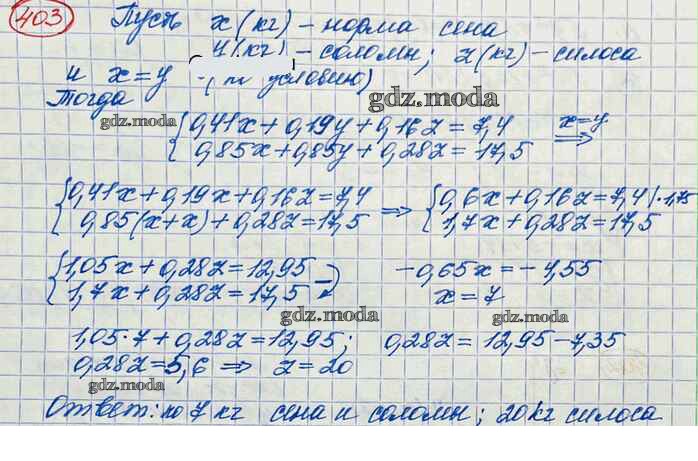 403 Пусть x (кг) – норма сена
y (кг) – соломы; z (кг) – силоса
и x = y (по условию)
Тогда
gdz.moda
gdz.moda
{0,41x + 0,19y + 0,16z = 7,4 x=y
0,85x + 0,85y + 0,28z = 17,5 ⇒
{0,41x + 0,19x + 0,16z = 7,4 ⇒ {0,6x + 0,16z = 7,4 | · 1,75
0,85(x+x) + 0,28z = 17,5 1,7x + 0,28z = 17,5
{1,05x + 0,28z = 12,95 −0,65x = −4,55
1,7x + 0,28z = 17,5 x = 7
gdz.moda
gdz.moda
1,05·7 + 0,28z = 12,95; 0,28z = 12,95 − 7,35
0,28z = 5,6 ⇒ z = 20
gdz.moda
Ответ: по 7 кг сена и соломы; 20 кг силоса